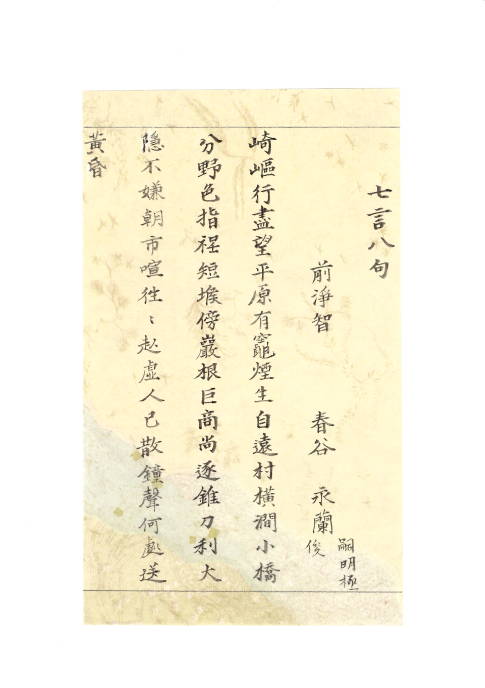 七言八句
前淨智　春谷　永蘭
嗣明極
俊
崎嶇行盡望平原有竈煙生自遠村橫澗小橋
分野色指程短堠傍巖根巨商尚逐錐刀利大
隱不嫌朝市喧徃〻趁虛人已散鐘聲何處送
黃昏